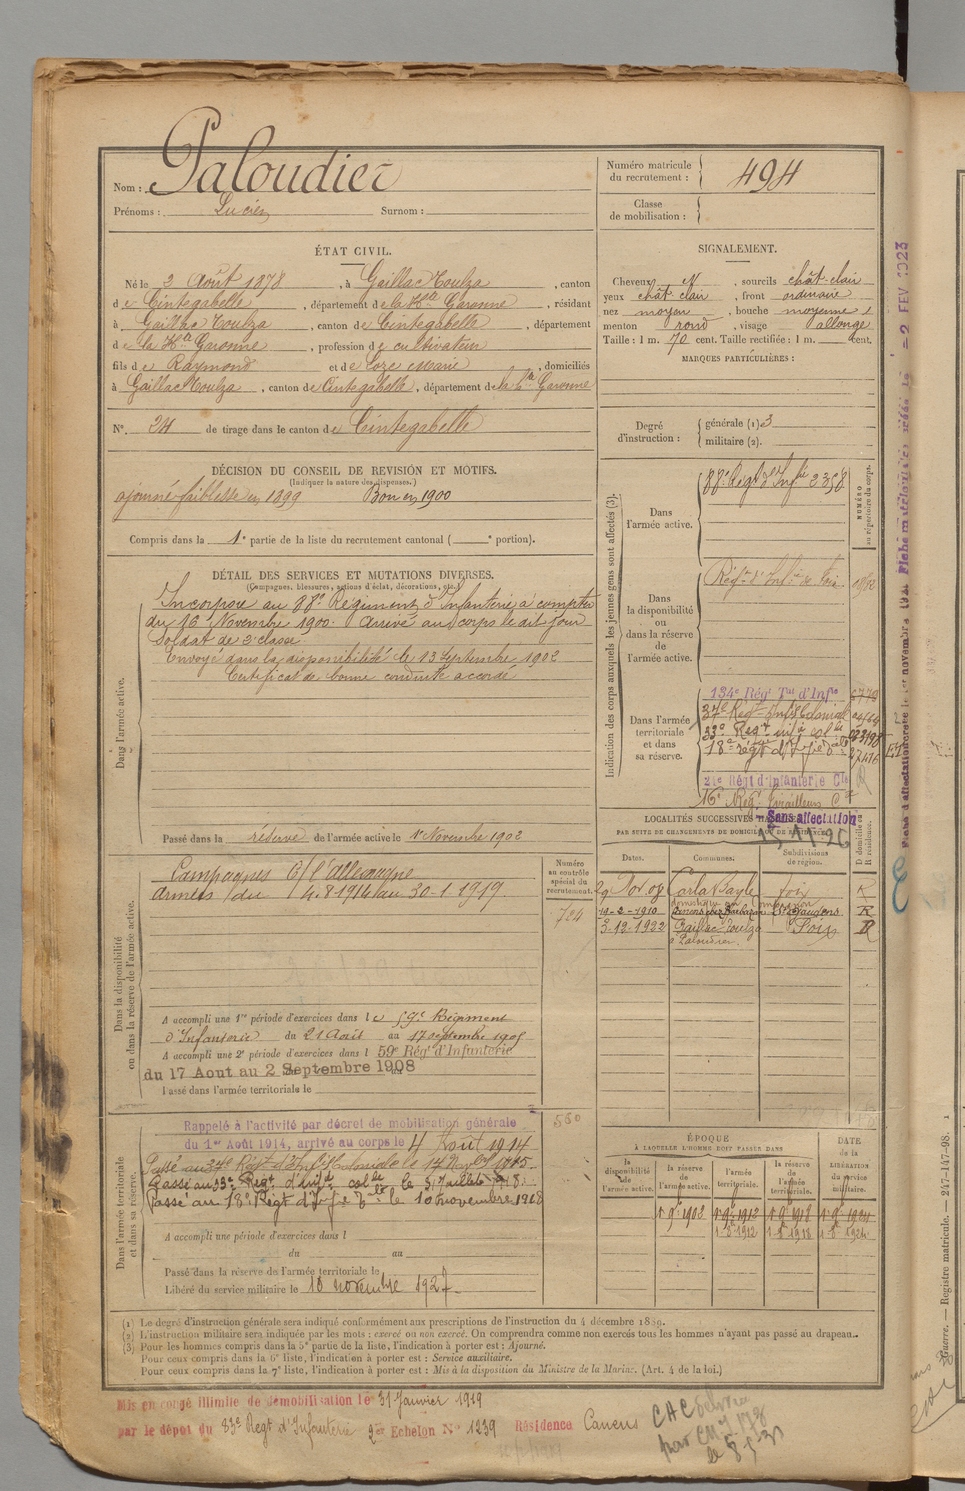 Nom : Paloudier
Prénoms : Lucien Surnom :
Numéro matricule du recrutement : 494
Classe de mobilisation :
ÉTAT CIVIL.
Né le 2 Août 1878, à Gaillac Toulza, canton
de Cintegabelle, département de la Hte Garonne, résidant
à Gaillac Toulza, canton de Cintegabelle, département
de la Hte Garonne, profession de cultivateur
fils de Raymond et de Loze Marie, domiciliés
à Gaillac Toulza, canton de Cintegabelle, département de la Hte Garonne
N° 24 de tirage dans le canton de Cintegabelle
SIGNALEMENT.
Cheveux N, sourcils chât-clair
yeux chât clair, front ordinaire
nez moyen, bouche moyenne
menton rond, visage allongé
Taille : 1 m. 70 cent. Taille rectifiée : 1 m. cent.
MARQUES PARTICULIÈRES :
Degré d'instruction : générale (1) 3
militaire (2).
DÉCISION DU CONSEIL DE REVISION ET MOTIFS.
(Indiquer la nature des dispenses.)
ajourné faiblesse en 1899 Bon en 1900
Compris dans la 1e partie de la liste du recrutement cantonal ( e portion).
DÉTAIL DES SERVICES ET MUTATIONS DIVERSES.
(Campagnes, blessures, actions d'éclat, décorations, etc.)
Dans l'armée active.
Incorporé au 88e Régiment d'Infanterie à compter
du 16 Novembre 1900. Arrivé au corps le dit jour
Soldat de 2e classe
Envoyé dans la disponibilité le 13 Septembre 1902
Certificat de bonne conduite accordé
Passé dans la réserve de l'armée active le 1er Novembre 1902
Indication des corps auxquels les jeunes gens sont affectés (3).
NUMÉRO au répertoire du corps.
Dans l'armée active.
88e Régt d'Infie 2358
Dans la disponibilité ou dans la réserve de l'armée active.
Régt d'Infie de Foix
Dans l'armée territoriale et dans sa réserve.
134e Régt Tal d'Infie 6779
37e Régt Infie Coloniale
33e Régt infie colle
18e régt d'Infie 27416
21e Régt d'Infanterie Cle
16e Régt Tirailleurs
Sans affectation
15.11.26
LOCALITÉS SUCCESSIVES HABITÉES
PAR SUITE DE CHANGEMENTS DE DOMICILE OU DE RÉSIDENCE.
Dates. Communes. Subdivisions de région. D domicile ou R résidence.
29 Nov 07 Carla Bayle foix R
19-2-1910 St Gaudens R
3-12-1922 Gaillac-Toulza Foix D
Dans la disponibilité ou dans la réserve de l'armée active.
Campagnes C/ l'Allemagne
Armées du 4.8.1914 au 30-1-1919
Numéro au contrôle spécial du recrutement.
724
A accompli une 1re période d'exercices dans le 59e Régiment
d'Infanterie du 21 Août au 17 septembre 1905
A accompli une 2e période d'exercices dans l 59e Régt d'Infanterie
du 17 Aout au 2 Septembre 1908
Passé dans l'armée territoriale le
Dans l'armée territoriale et dans sa réserve.
Rappelé à l'activité par décret de mobilisation générale
du 1er Août 1914, arrivé au corps le 4 Août 1914
Passé au 37e Régt d'Infie Coloniale le 17 Novbre 1915
Passé au 33e Régt d'infie colle le 5 Juillet 1918
Passé au 18e Régt d'Infie le 10 novembre 1918
580
A accompli une période d'exercices dans l
du au
Passé dans la réserve de l'armée territoriale le
Libéré du service militaire le 10 novembre 1927
ÉPOQUE À LAQUELLE L'HOMME DOIT PASSER DANS
la disponibilité de l'armée active. la réserve de l'armée active. l'armée territoriale. la réserve de l'armée territoriale. DATE de la LIBÉRATION du service militaire.
1.9.1902 1.9.1912 1.9.1918 1.9.1924
1-8-1912 1-8-1918 1-8-1924
(1) Le degré d'instruction générale sera indiqué conformément aux prescriptions de l'instruction du 4 décembre 1889.
(2) L'instruction militaire sera indiquée par les mots : exercé ou non exercé. On comprendra comme non exercés tous les hommes n'ayant pas passé au drapeau.
(3) Pour les hommes compris dans la 5e partie de la liste, l'indication à porter est : Ajourné.
Pour ceux compris dans la 6e liste, l'indication à porter est : Service auxiliaire.
Pour ceux compris dans la 7e liste, l'indication à porter est : Mis à la disposition du Ministre de la Marine. (Art. 4 de la loi.)
Mis en congé illimité de démobilisation le 31 Janvier 1919
par le dépot du 83e Régt d'Infanterie 2e Echelon N° 1239 Résidence Canens
Guerre. — Registre matricule. — 247-147-98.